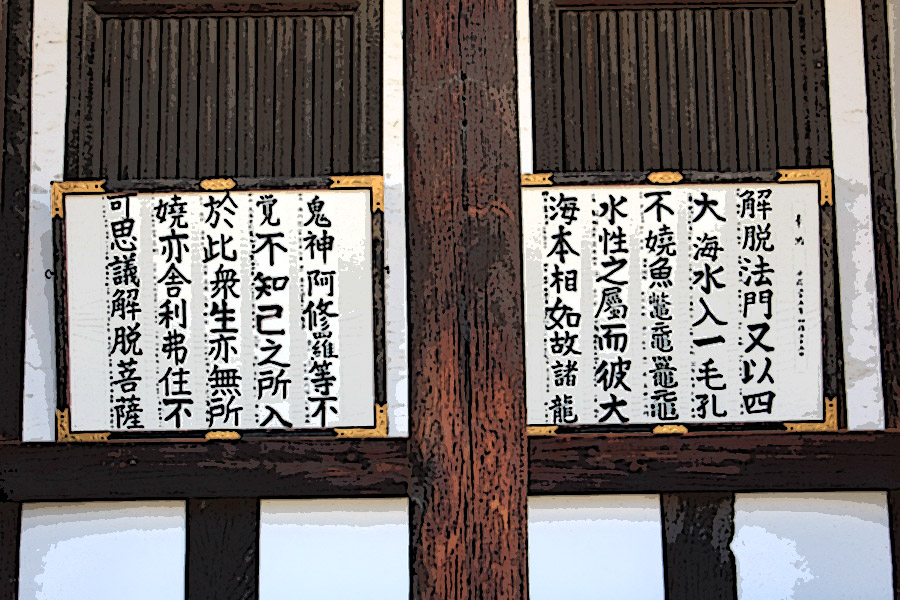 解脱法門又以四
大海水入一毛孔
不嬈魚鼈黿鼉黿
水性之屬而彼大
海本相如故諸龍
鬼神阿修羅等不
覚不知己之所入
於此衆生亦無所
嬈亦舎利弗住不
可思議解脱菩薩